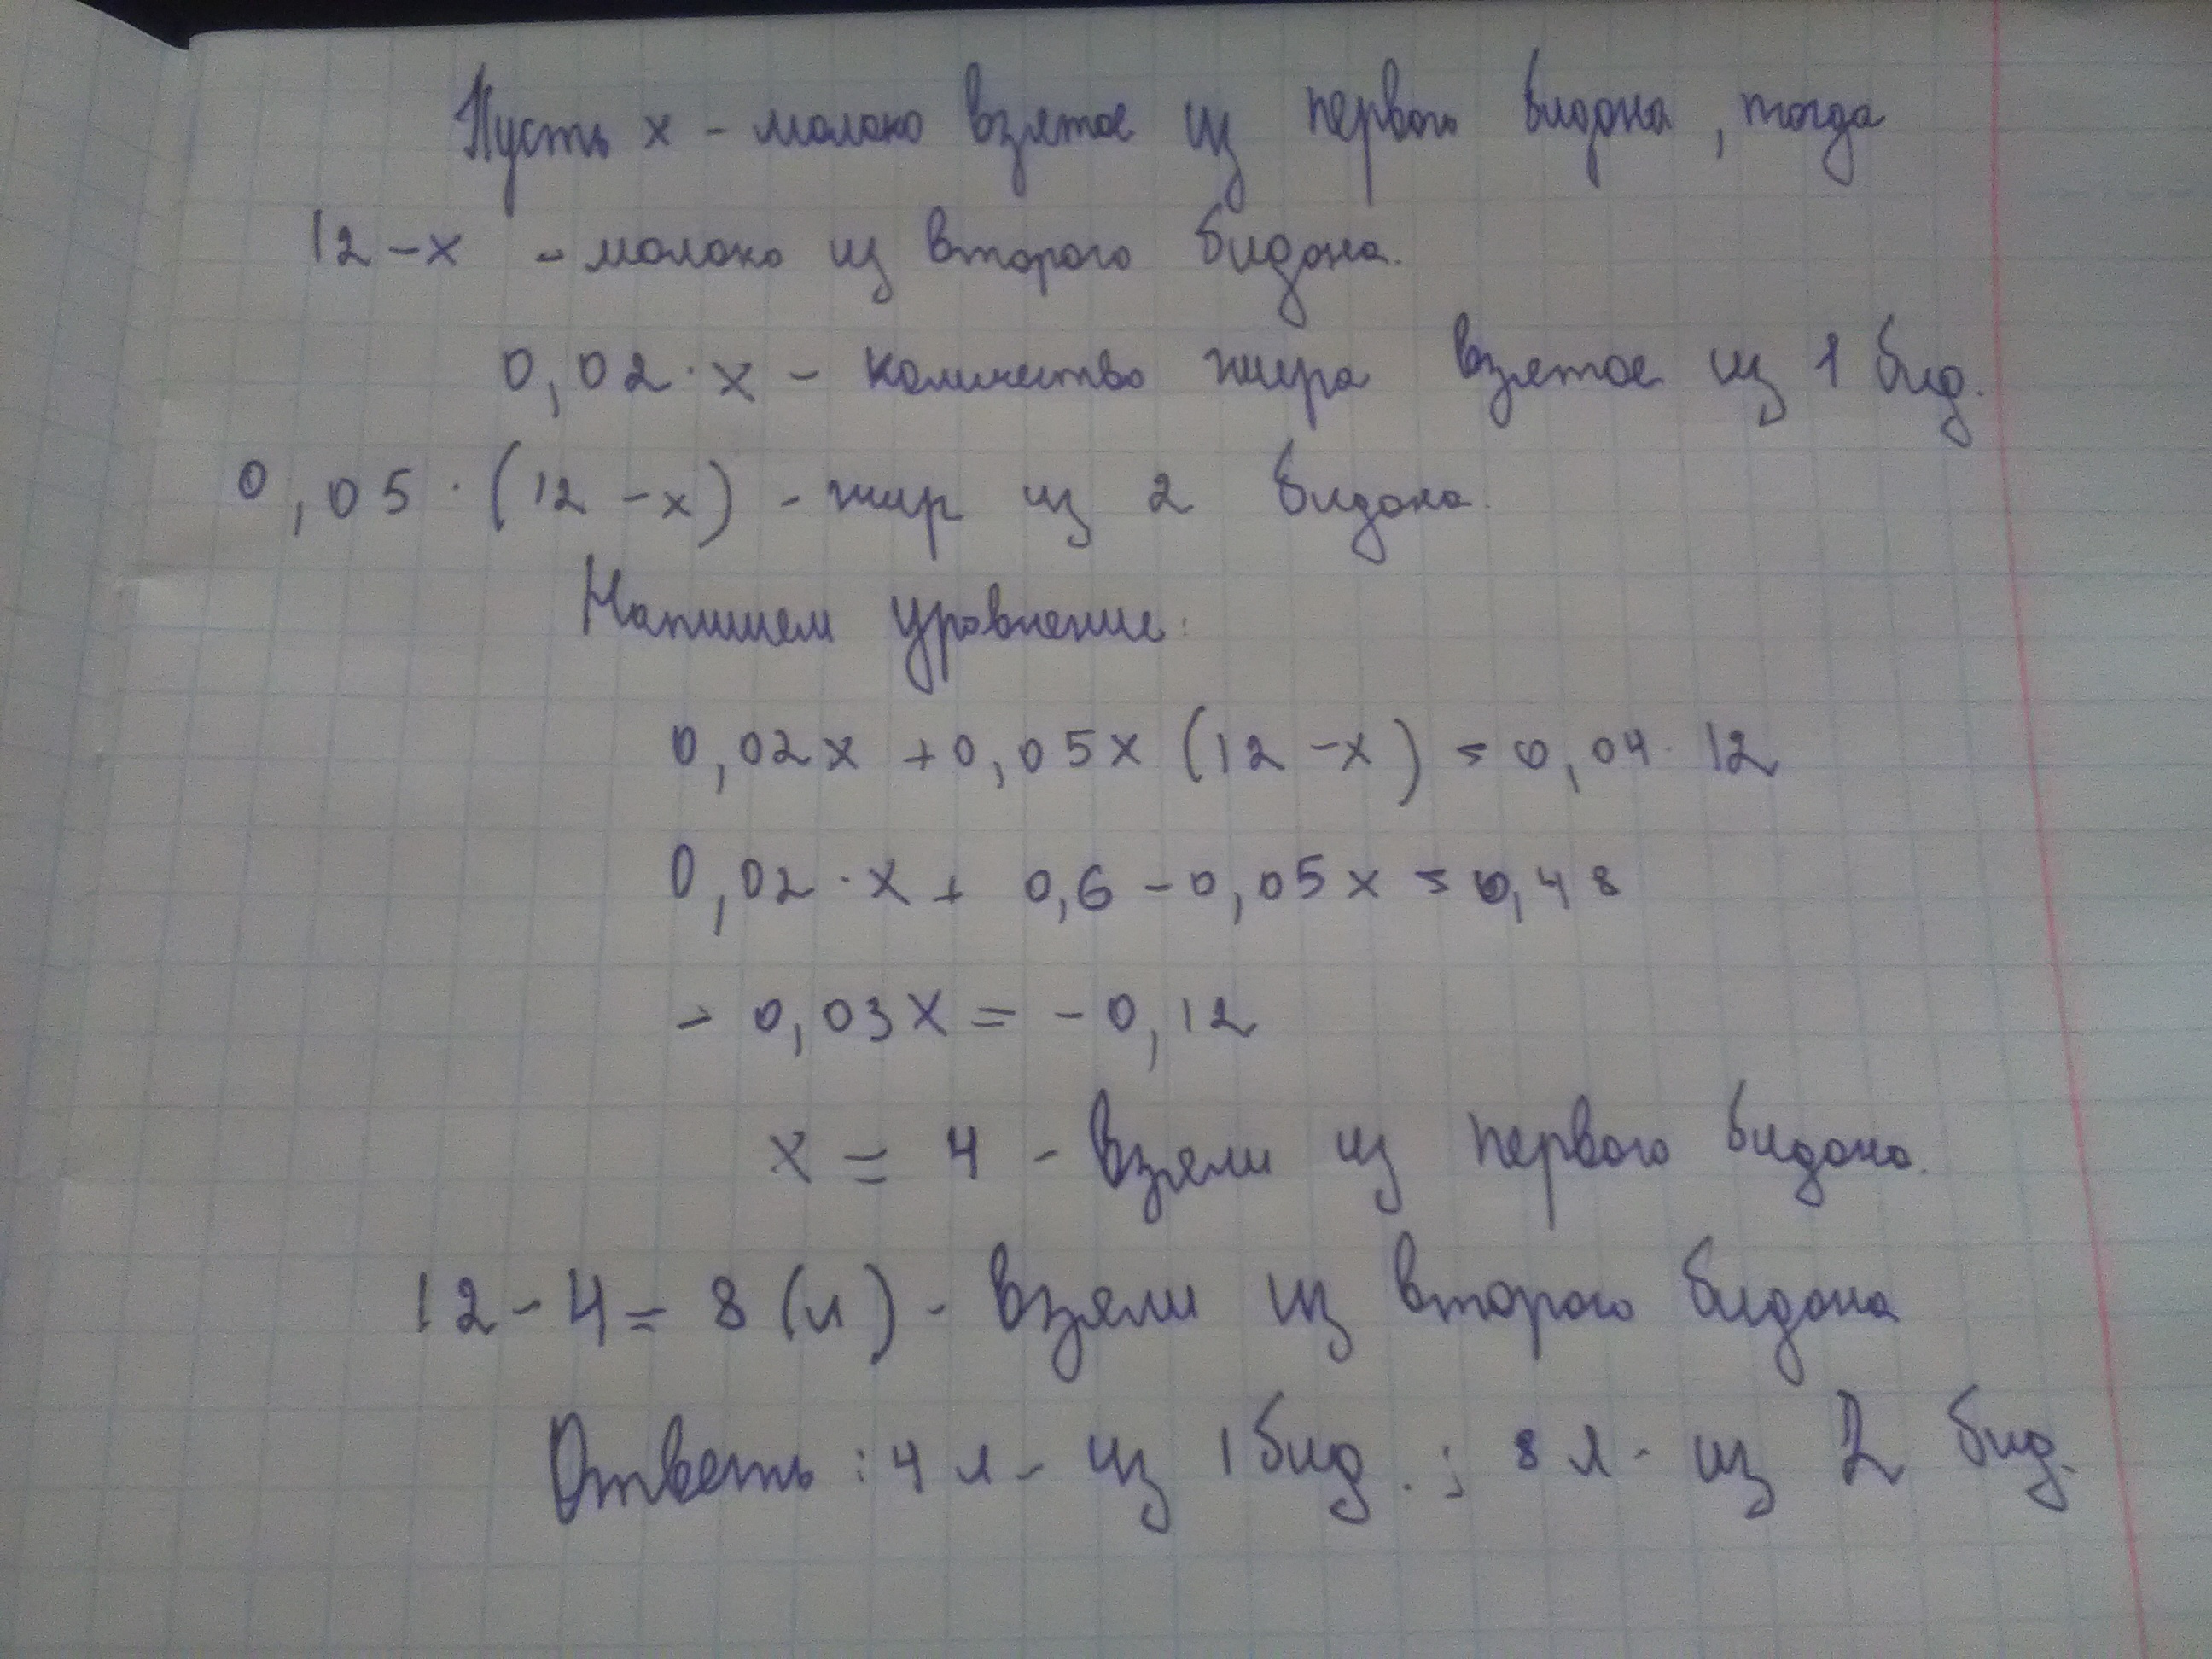 Пусть х - молоко взятое из первого бидона, тогда
12 - х - молоко из второго бидона.
0,02 · х - количество жира взятое из 1 бид.
0,05 · (12 - х) - жир из 2 бидона.
Напишем уравнение:
0,02х + 0,05х (12 - х) = 0,04 · 12
0,02 · х + 0,6 - 0,05х = 0,48
- 0,03х = - 0,12
х = 4 - взяли из первого бидона.
12 - 4 = 8 (л) - взяли из второго бидона
Ответь : 4 л - из 1 бид. ; 8 л - из 2 бид.